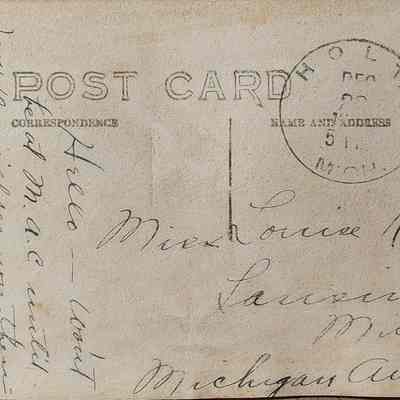 POST CARD
CORRESPONDENCE
NAME AND ADDRESS
HOLT
DEC
5
MICH.
Hello - Won't
be at M.A.C until
Miss Louise
Lansin
Mi
Michigan Av